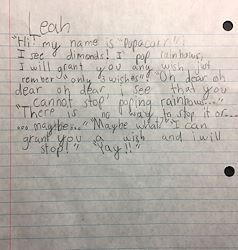 Leah
"Hi! my name is "Pupacorn"!
I see dimonds! I pop rainbows,
I will grant you any wish, just
rember "only 3 wishes!" "Oh dear oh
dear oh dear i see that you
cannot stop poping rainbows..."
"There is no way to stop it or...
... maybe..." "Maybe what" "I can
grant you a wish and i will
stop!" "Yay!!"